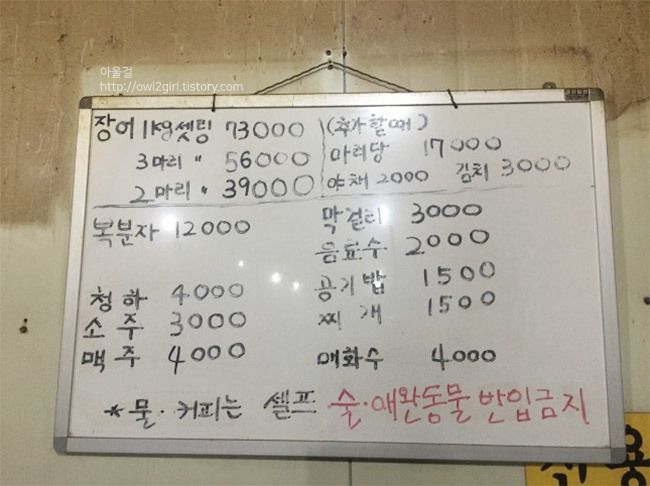 아울걸
http://owl2girl.tistory.com
장어 1kg셋팅 73000
3마리 〃 56000
2마리 〃 39000
(추가할때)
마리당 17000
야채 2000 김치 3000
복분자 12000
청하 4000
소주 3000
맥주 4000
막걸리 3000
음료수 2000
공기밥 1500
찌개 1500
매화수 4000
*물·커피는 셀프 술·애완동물 반입금지
용